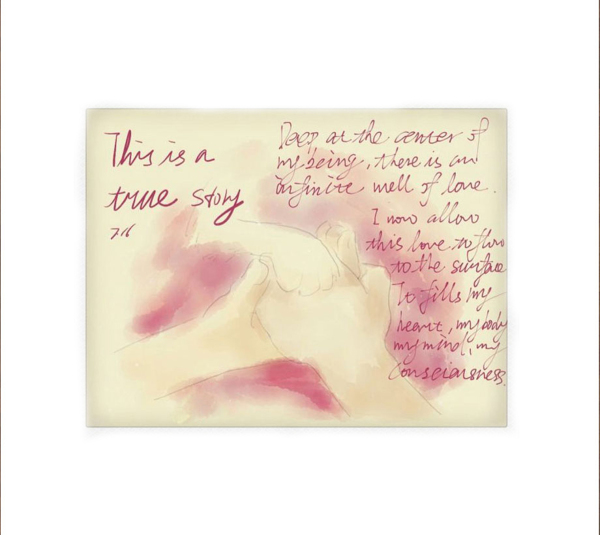 This is a
true story
Deep at the center of
my being, there is an
infinite well of love.
I now allow
this love to flow
to the surface
It fills my
heart, my body
my mind, my
consciousness.